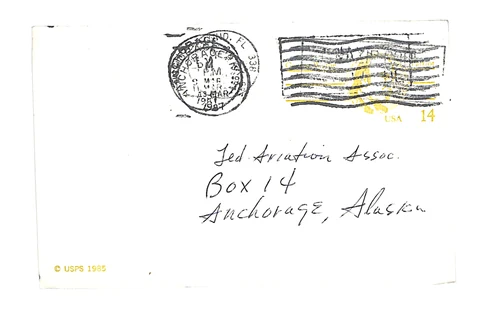 FL 338
PM
MAR
1987
USA 14
Fed Aviation Assoc.
Box 14
Anchorage, Alaska
© USPS 1985